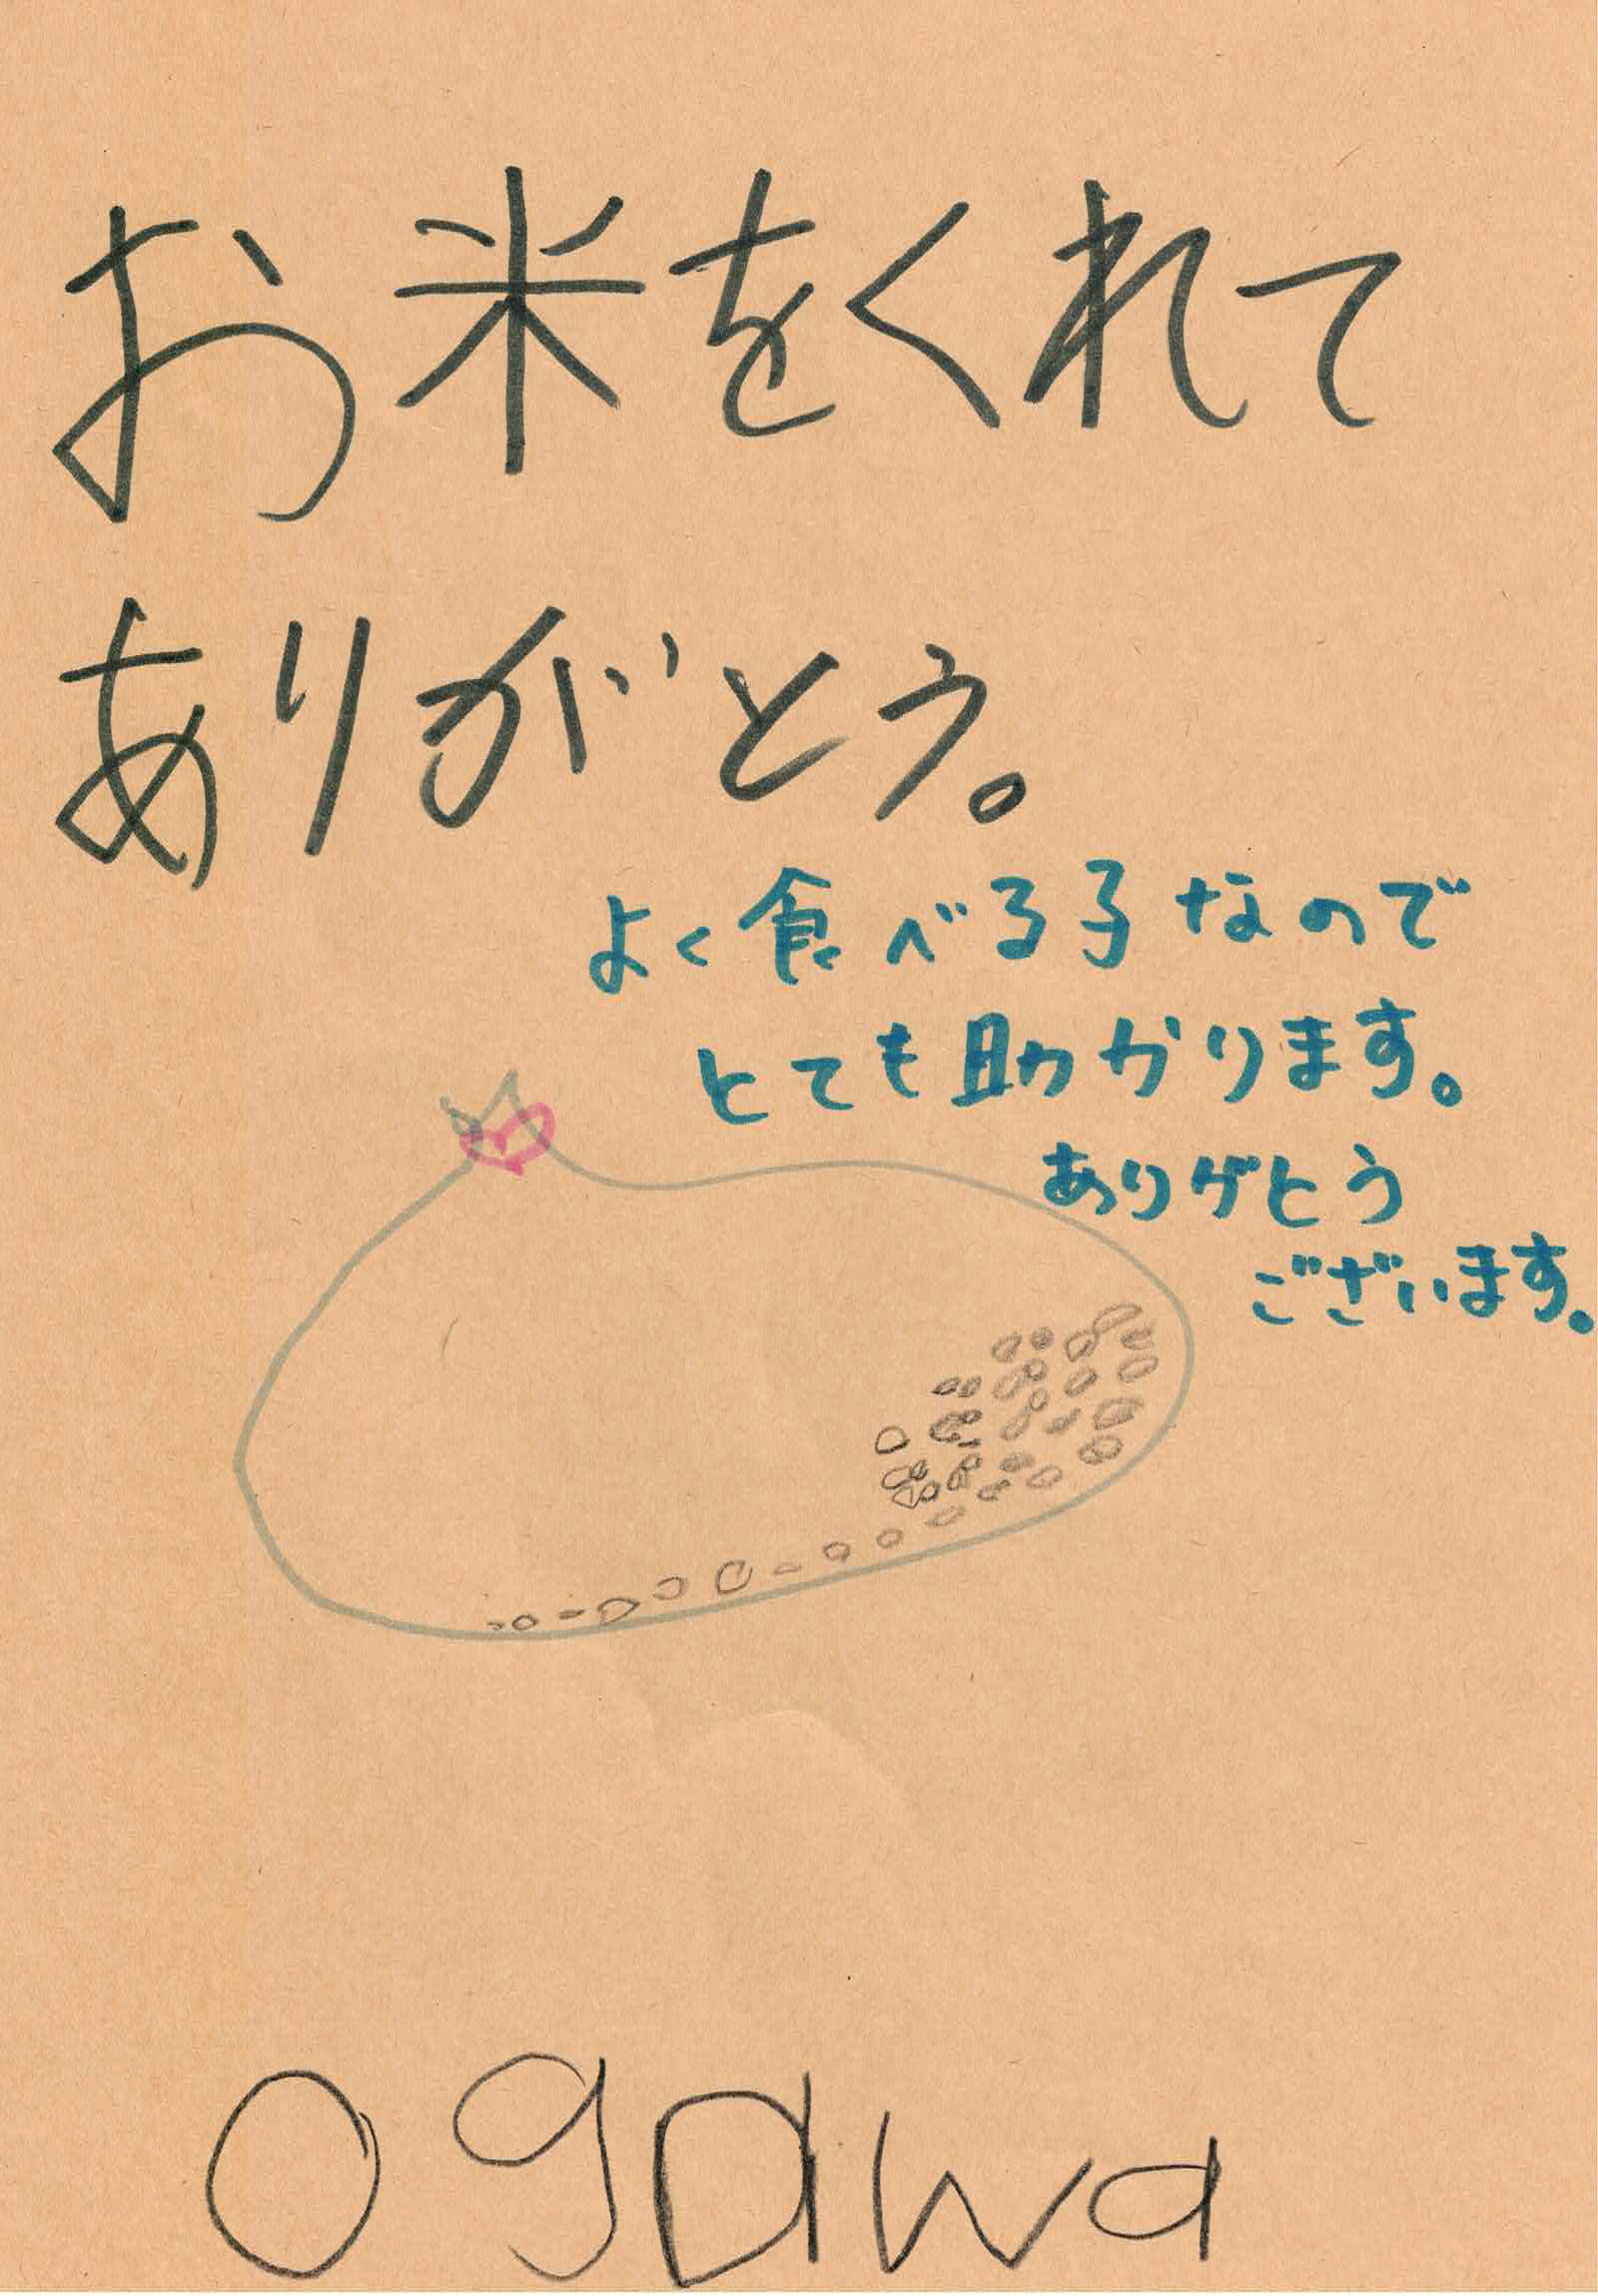 お米をくれて
ありがとう。
よく食べる子なので
とても助かります。
ありがとう
ございます。
ogawa